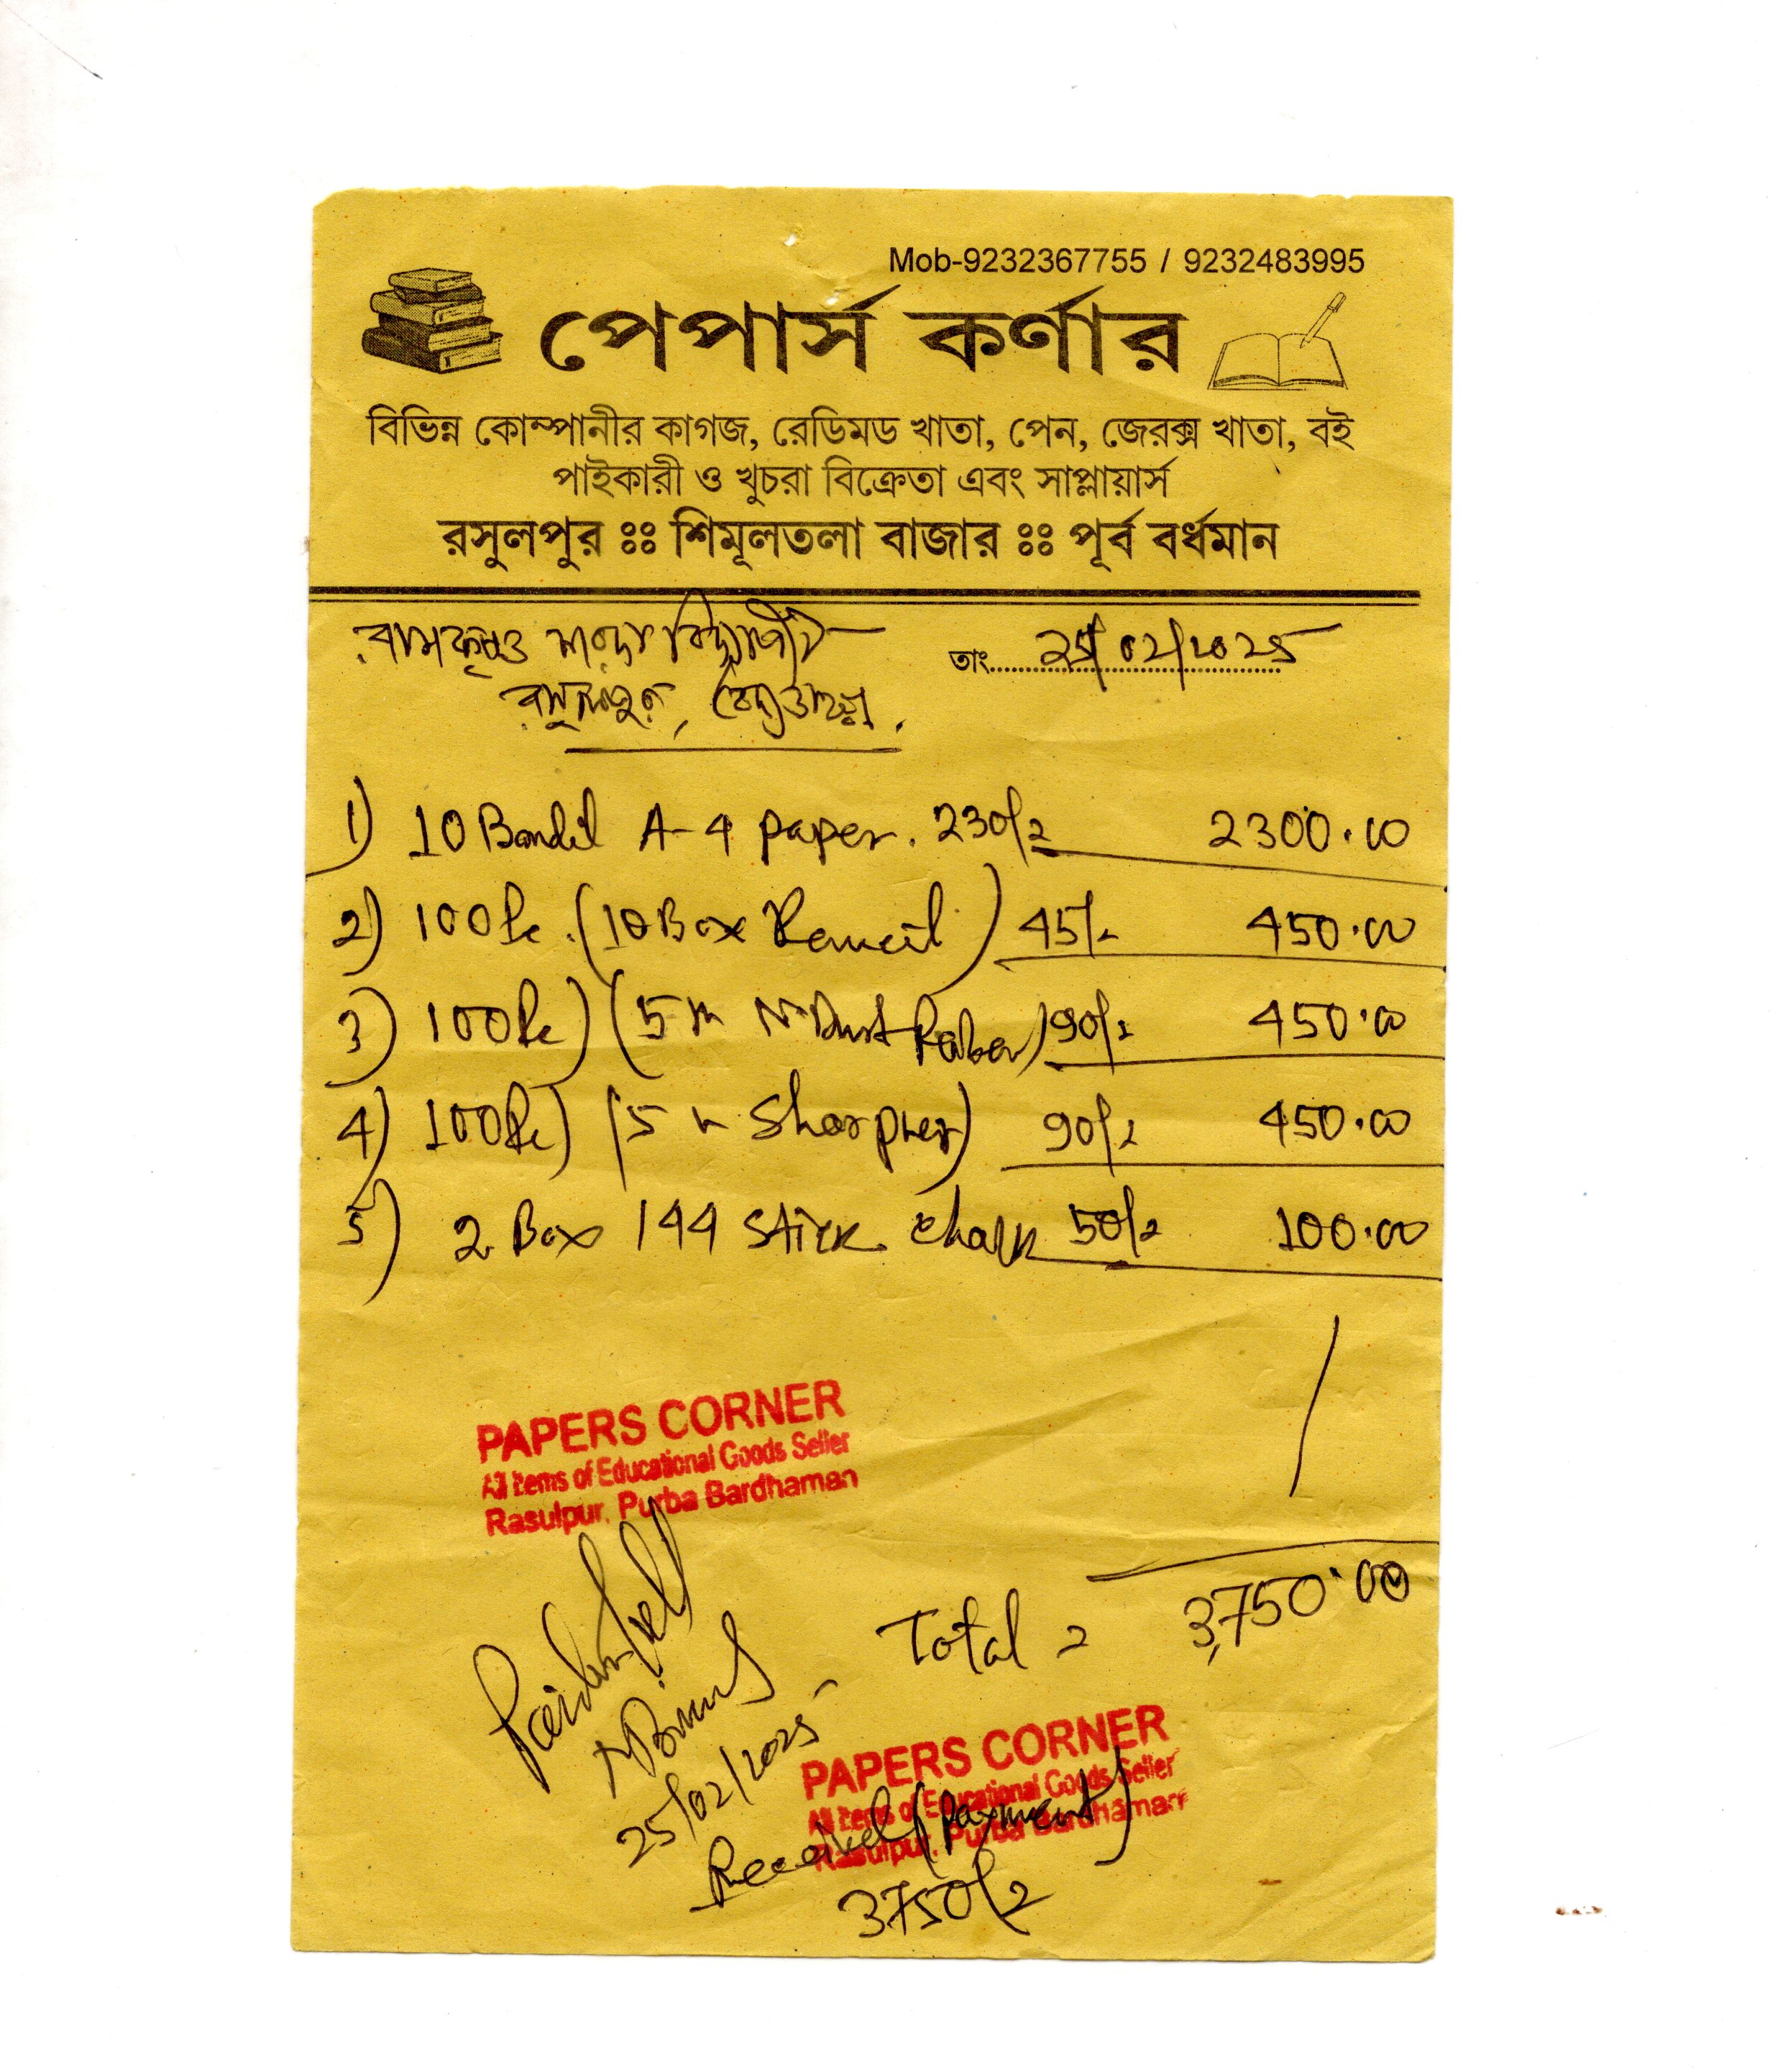 Mob-9232367755 / 9232483995
পেপার্স কর্ণার
বিভিন্ন কোম্পানীর কাগজ, রেডিমড খাতা, পেন, জেরক্স খাতা, বই
পাইকারী ও খুচরা বিক্রেতা এবং সাপ্লায়ার্স
রসুলপুর ঃঃ শিমূলতলা বাজার ঃঃ পূর্ব বর্ধমান
রামকৃষ্ণ সারদা বিদ্যাপীঠ
তাং..... 25/02/2025
রসুলপুর,
1) 10 Bandil A-4 paper. 230/= 2300.00
2) 100 Pc. (10 Box Pencil) 45/= 450.00
3) 100 Pc) (5 N-Dust Raber) 90/= 450.00
4) 100 Pc) (5 Sharpner) 90/= 450.00
5) 2 Box 144 stick chalk 50/= 100.00
PAPERS CORNER
All Items of Educational Goods Seller
Rasulpur, Purba Bardhaman
Total = 3,750.00
25/02/2025
PAPERS CORNER
All Items of Educational Goods Seller
Rasulpur, Purba Bardhaman
Received (payment)
3750/=